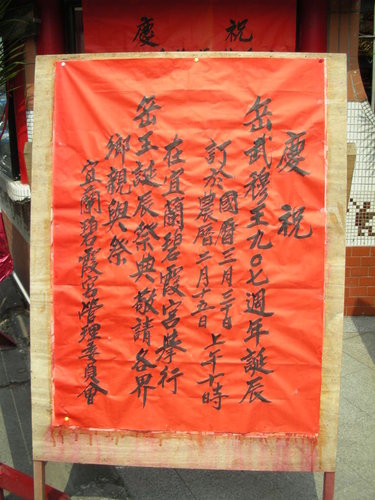 慶祝
慶祝
岳武穆王九0七週年誕辰
訂於國曆三月三十日
農曆二月十五日
上午十時
在宜蘭碧霞宮舉行
岳王誕辰祭典敬請各界
鄉親與祭
宜蘭碧霞宮管理委員會